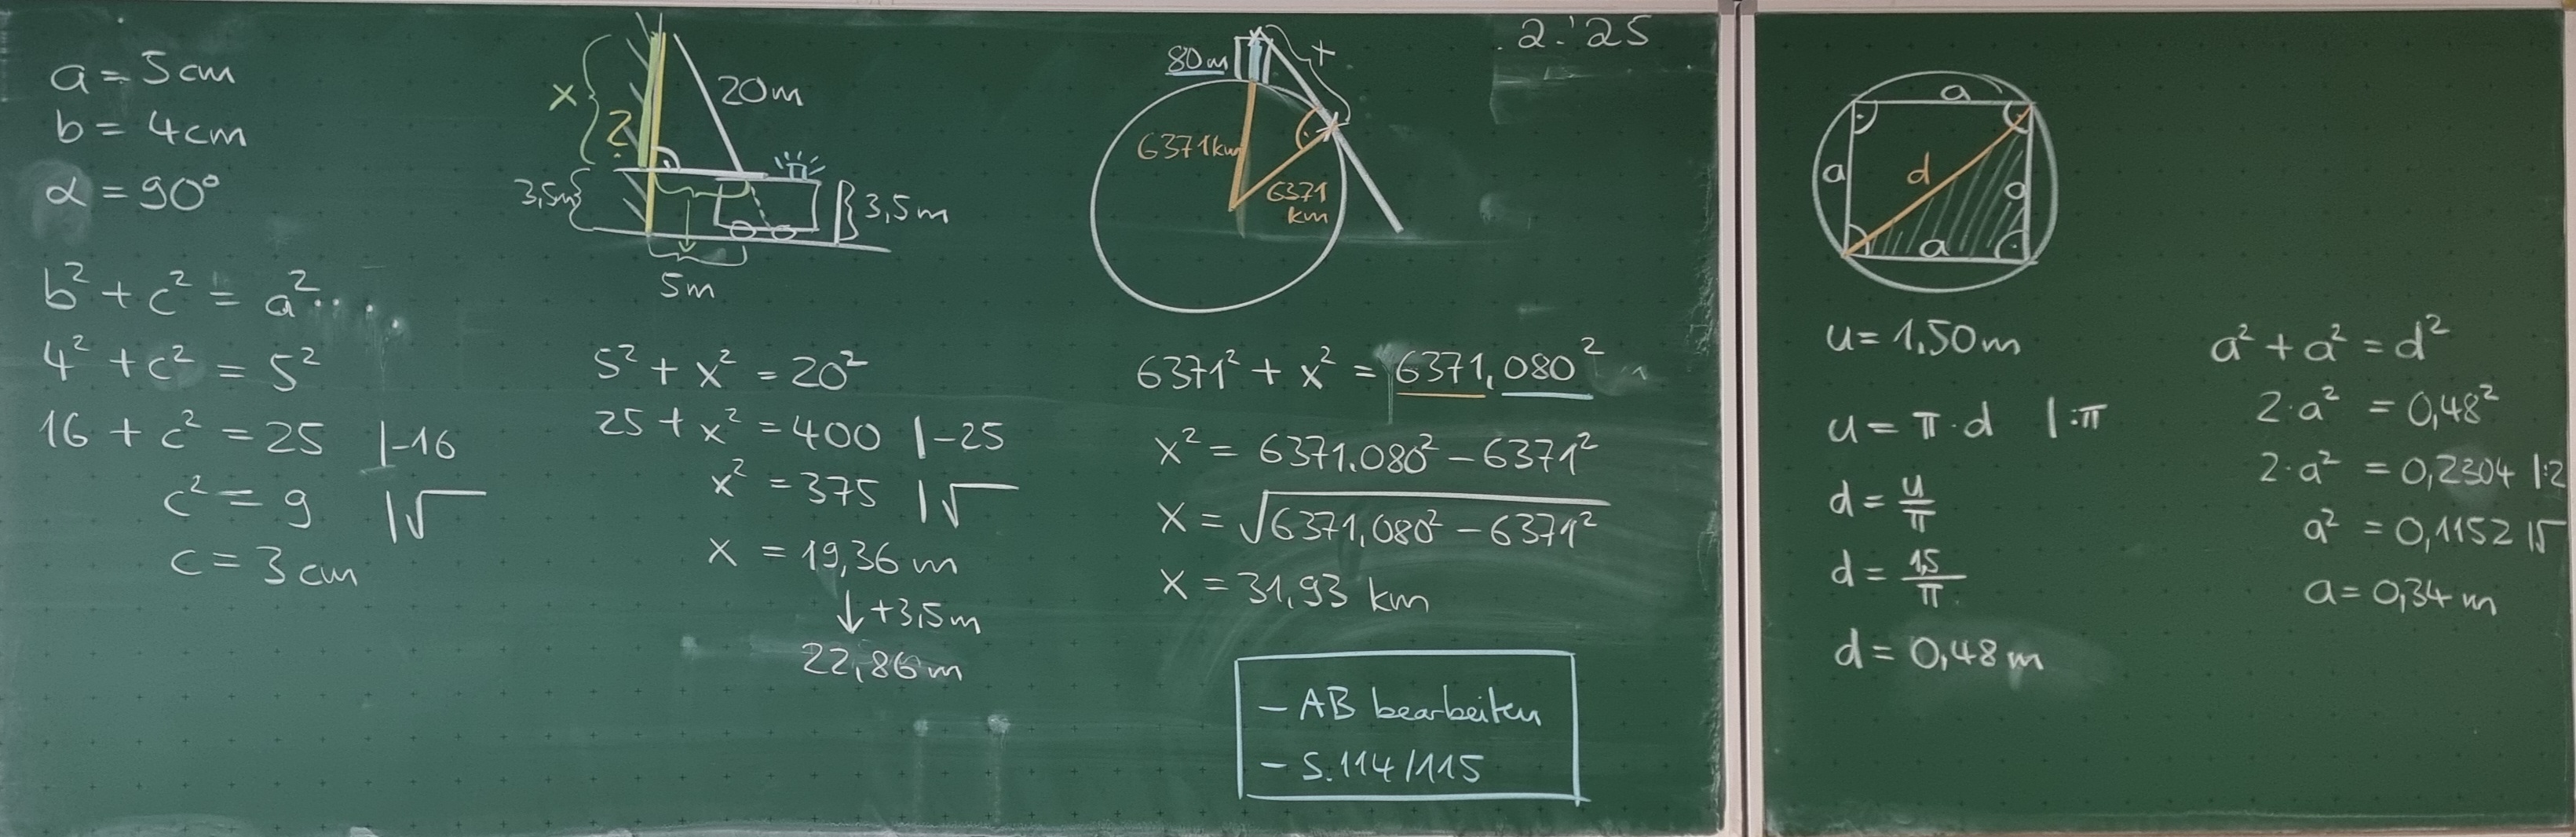 a = 5cm
b = 4cm
α = 90°
b² + c² = a²
4² + c² = 5²
16 + c² = 25 |-16
c² = 9 |√
c = 3cm
x
?
20m
3,5m
3,5m
5m
5² + x² = 20²
25 + x² = 400 |-25
x² = 375 |√
x = 19,36 m
↓ +3,5m
22,86m
2.'25
80m
x
6371km
6371
km
6371² + x² = 6371,080²
x² = 6371.080² - 6371²
x = √6371,080² - 6371²
x = 31,93 km
- AB bearbeiten
- S.114/115
a
a
d
a
a
u = 1,50m
u = π·d |:π
d = u/π
d = 1,5/π
d = 0,48m
a² + a² = d²
2·a² = 0,48²
2·a² = 0,2304 |:2
a² = 0,1152 |√
a = 0,34 m